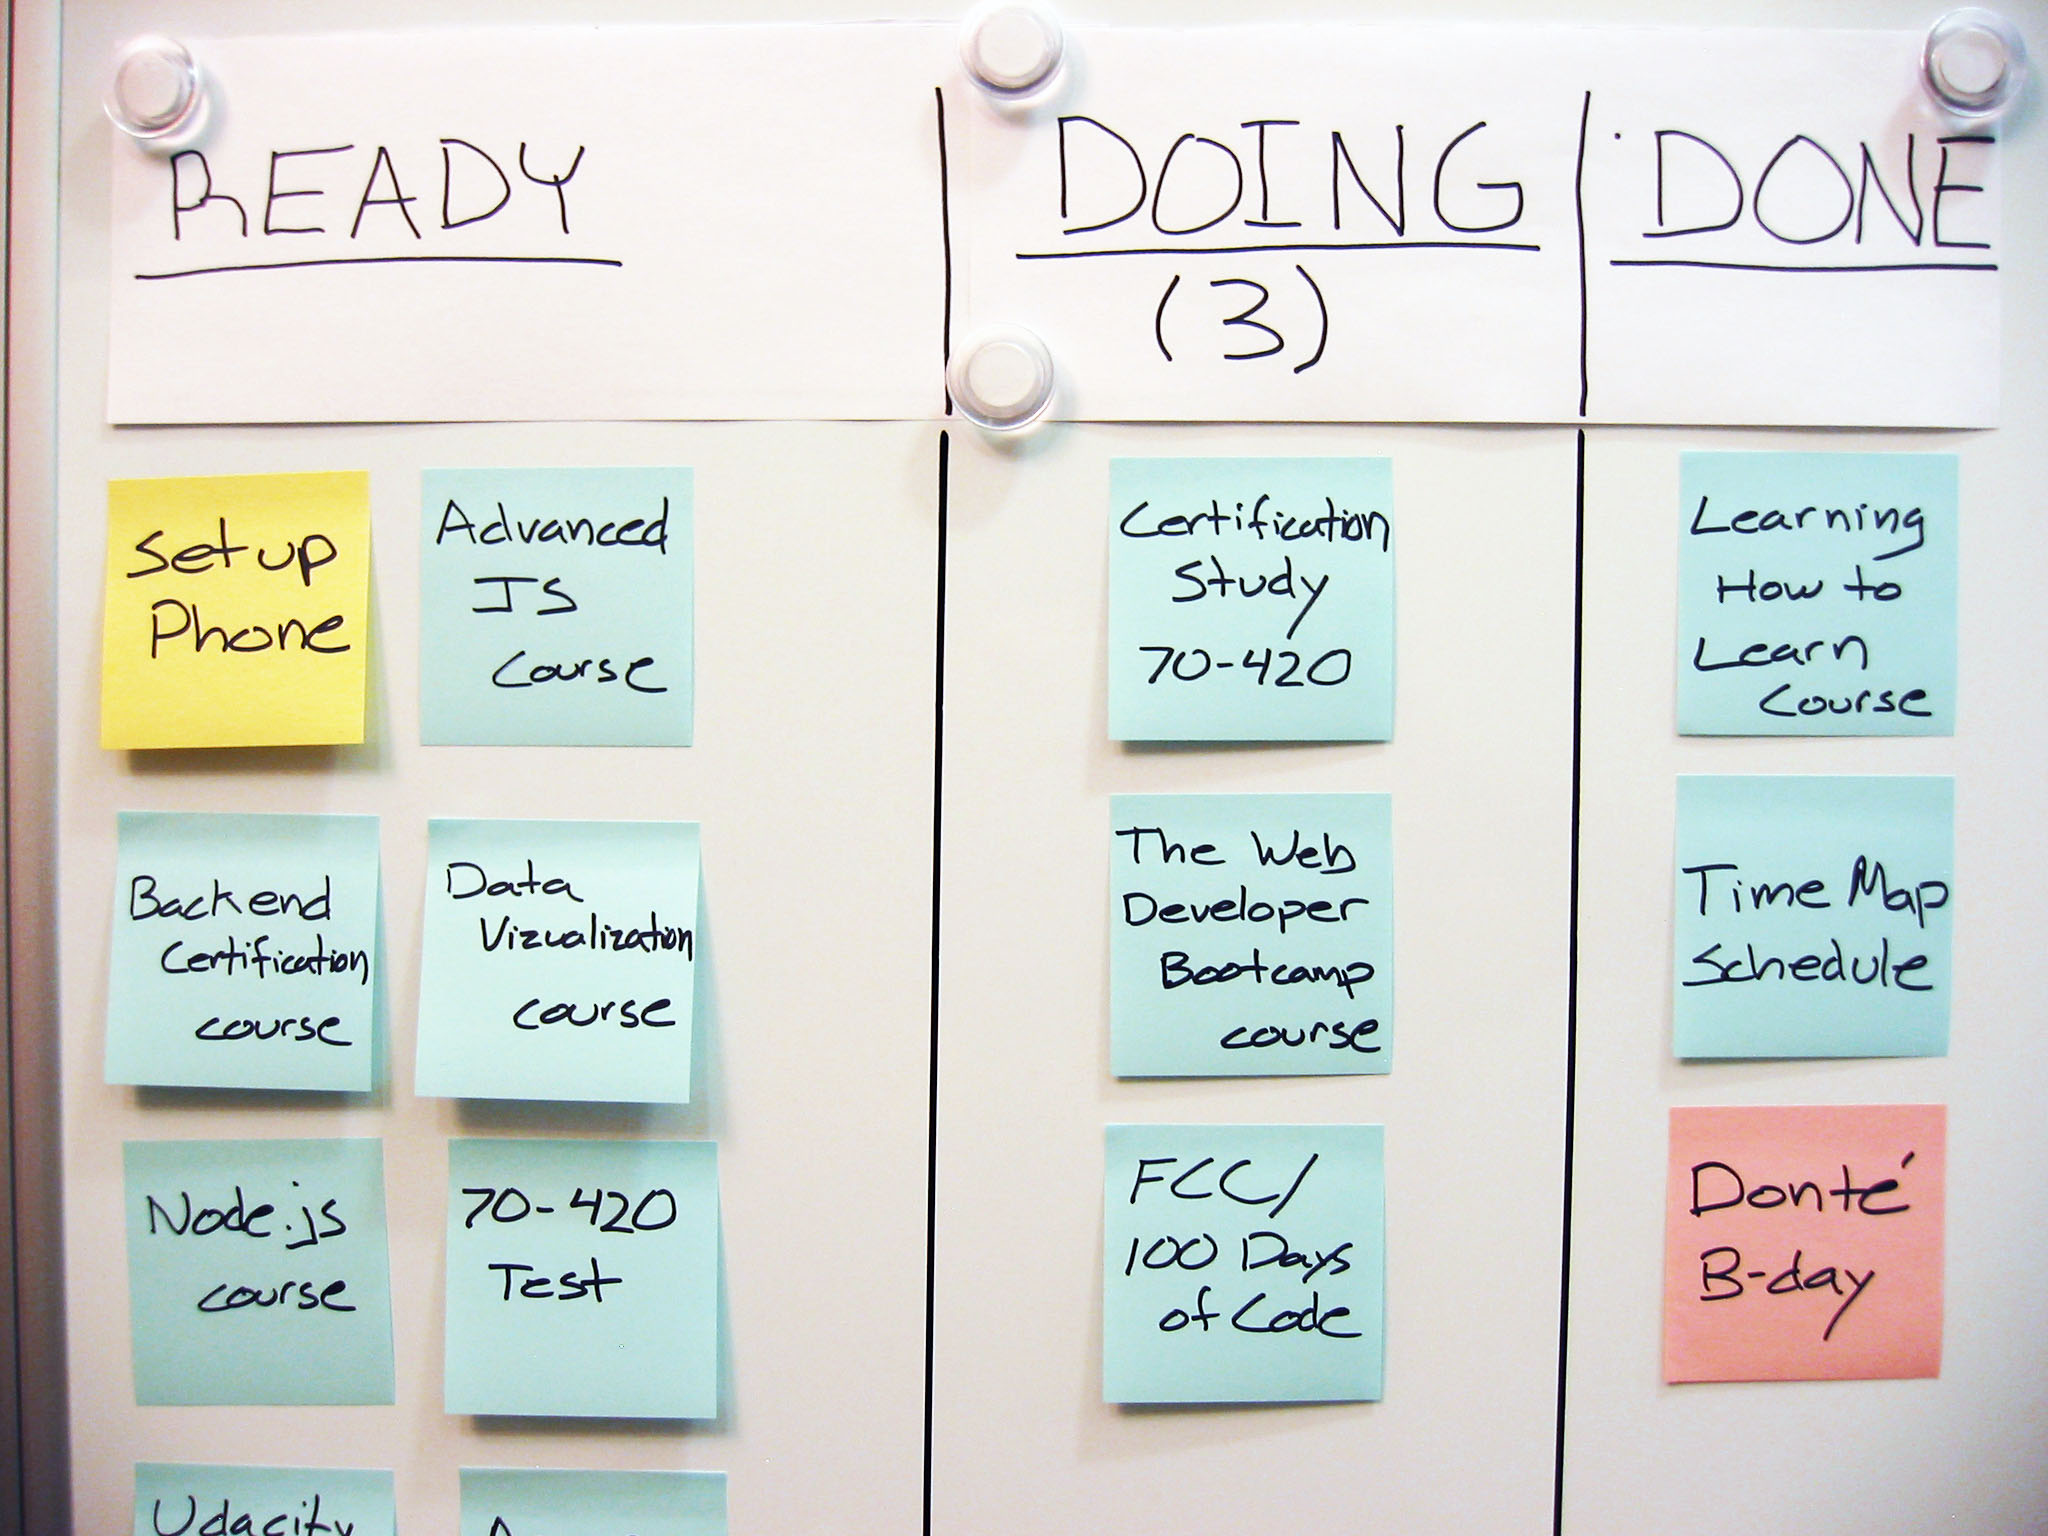 READY
DOING
(3)
DONE
Setup
Phone
Advanced
JS
Course
Backend
Certification
course
Data
Vizualization
course
Node.js
course
70-420
Test
Udacity
Certification
Study
70-420
The Web
Developer
Bootcamp
course
FCC/
100 Days
of Code
Learning
How to
Learn
Course
Time Map
Schedule
Donté
B-day